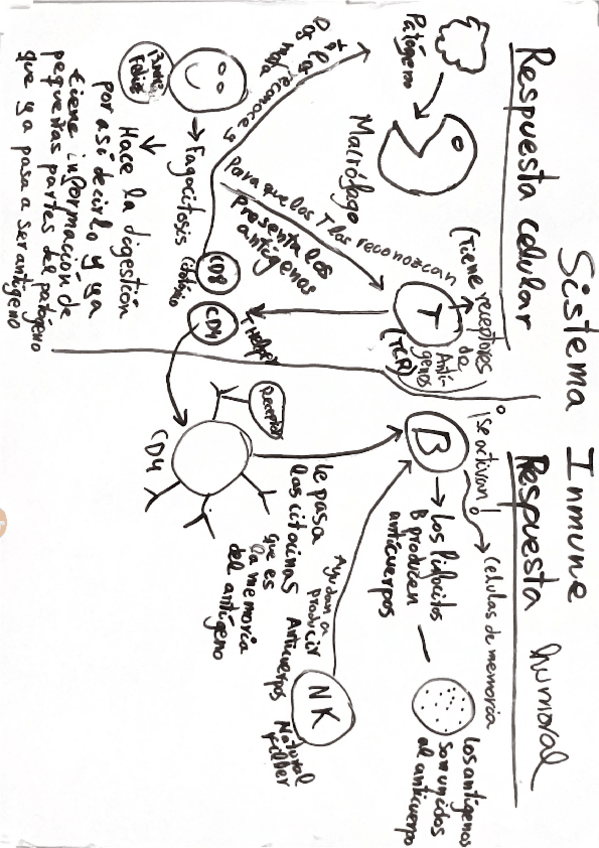 Sistema Inmune
Respuesta celular
Patógeno
Macrófago
(Tiene receptores
de
Antí-
genos
(TCR)
T
Para que los T las reconozcan
Presenta los
antígenos
reconoce y
CD8
Citotóxico
CD4
T Helper
→ Fagocitosis
Hace la digestión
por así decirlo y ya
tiene información de
pequeñas partes del patógeno
que ya pasa a ser antígeno
Respuesta humoral
¡Se activan!
Células de memoria
B
Los linfocitos
B producen
anticuerpos
Los antígenos
son unidos
al anticuerpo
Receptor
CD4
le pasa
las citocinas
que es
la memoria
del antígeno
Ayudan a
producir
Anticuerpos
NK
Natural
Killer